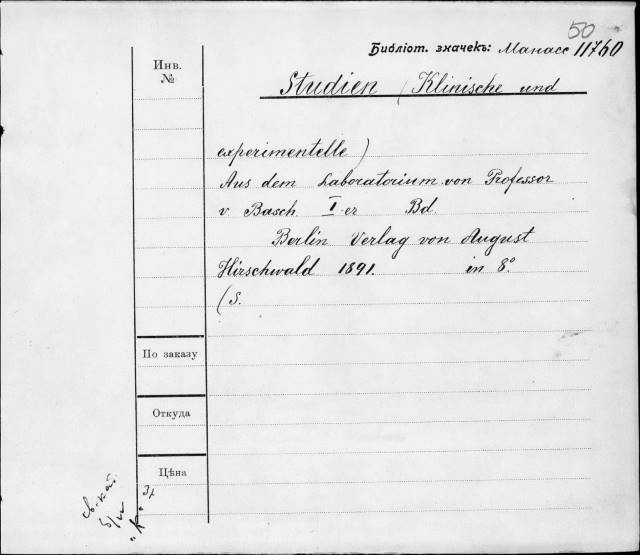 50
Библіот. значекъ: Манасс 11760
Инв.
№
Studien (Klinische und
experimentelle)
Aus dem Laboratorium von Professor
v Basch I-er Bd.
Berlin Verlag von August
Hirschwald 1891. in 8°
(S.
По заказу
Откуда
Цѣна
св. кат.
"К"